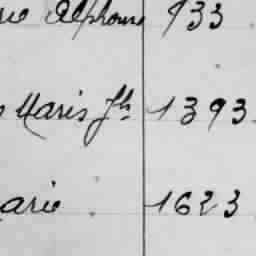 Alphonse 933
Maris Jh 1393.
arie 1623